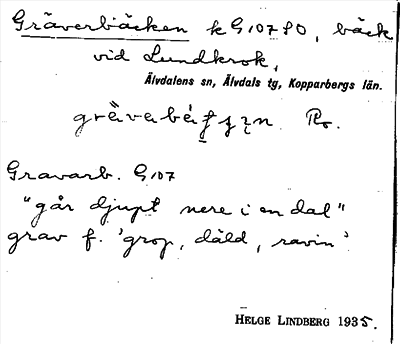 Gräverbäcken k G10780, bäck
vid Lundkrok,
Älvdalens sn, Älvdals tg, Kopparbergs län.
Ro.
Gravarb. G107
"går djupt nere i en dal"
grav f. 'grop, däld, ravin'
HELGE LINDBERG 1935.